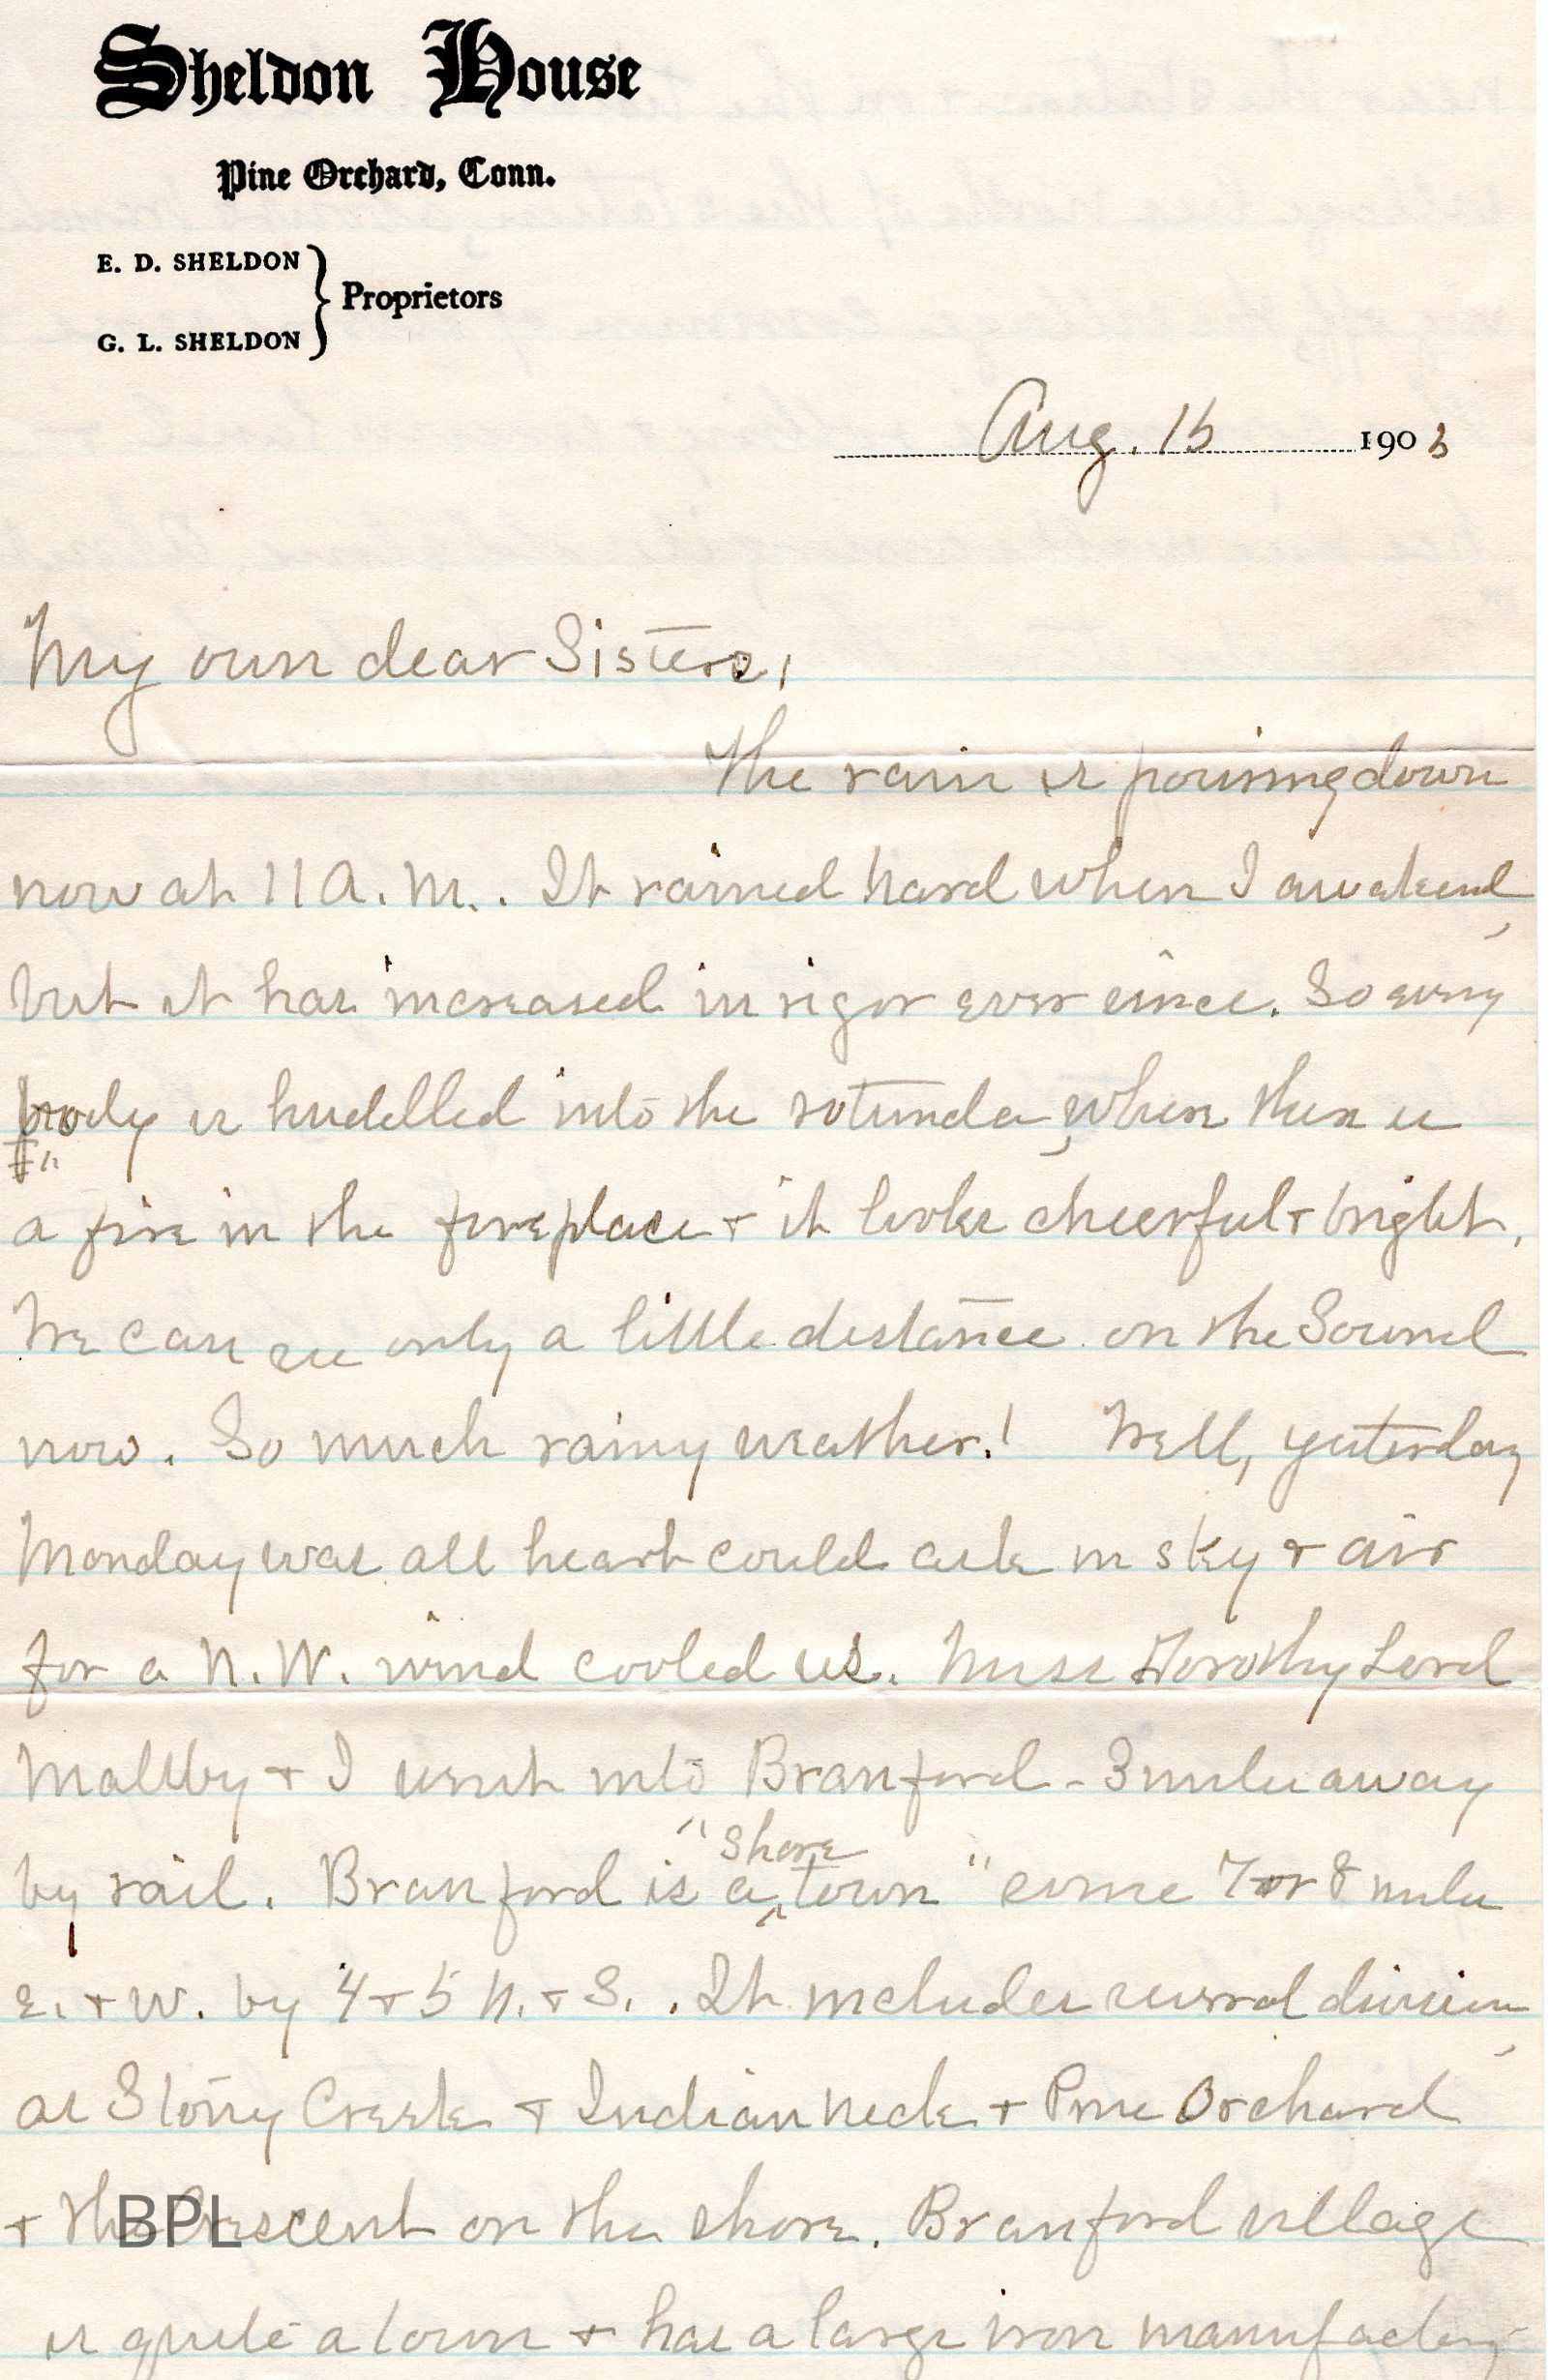 Sheldon House
Pine Orchard, Conn.
E. D. SHELDON
Proprietors
G. L. SHELDON
Aug. 15 1903
My own dear Sisters,
The rain is pouring down
now at 11 A. M.. It rained hard when I awakened,
but it has increased in vigor ever since. So every
body is huddled into the rotunda, where there is
a fire in the fireplace + it looks cheerful + bright.
We can see only a little distance on the Sound
now. So much rainy weather! Well, yesterday
Monday was all heart could ask in sky + air
for a N. W. wind cooled us. Miss Dorothy Lord
Maltby + I went into Branford - 3 miles away
by rail. Branford is a "shore town" some 7 or 8 miles
E. + W. by 4 + 5 N. + S. . It includes several divisions,
as Stony Creek + Indian Neck + Pine Orchard
+ the Crescent on the shore. Branford village
is quite a town + has a large iron manufactory
BPL